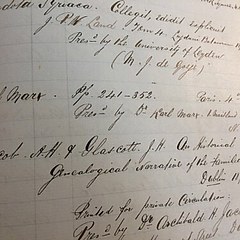 dota Syriaca. Collegit, edidit explicuit
J. P. N. Land. Tom. 4. Leyden
Pres^d by the University of Leyden
(M. J. de Goeje)
Marx. Pp. 241-352. Paris. 4^o
Pres^d by Dr Karl Marx.
A. H. & Glascott J. H. An Historical
Genealogical Narrative of the Families
Dublin
Printed for private Circulation
Pres^d by Dr Archibald H.